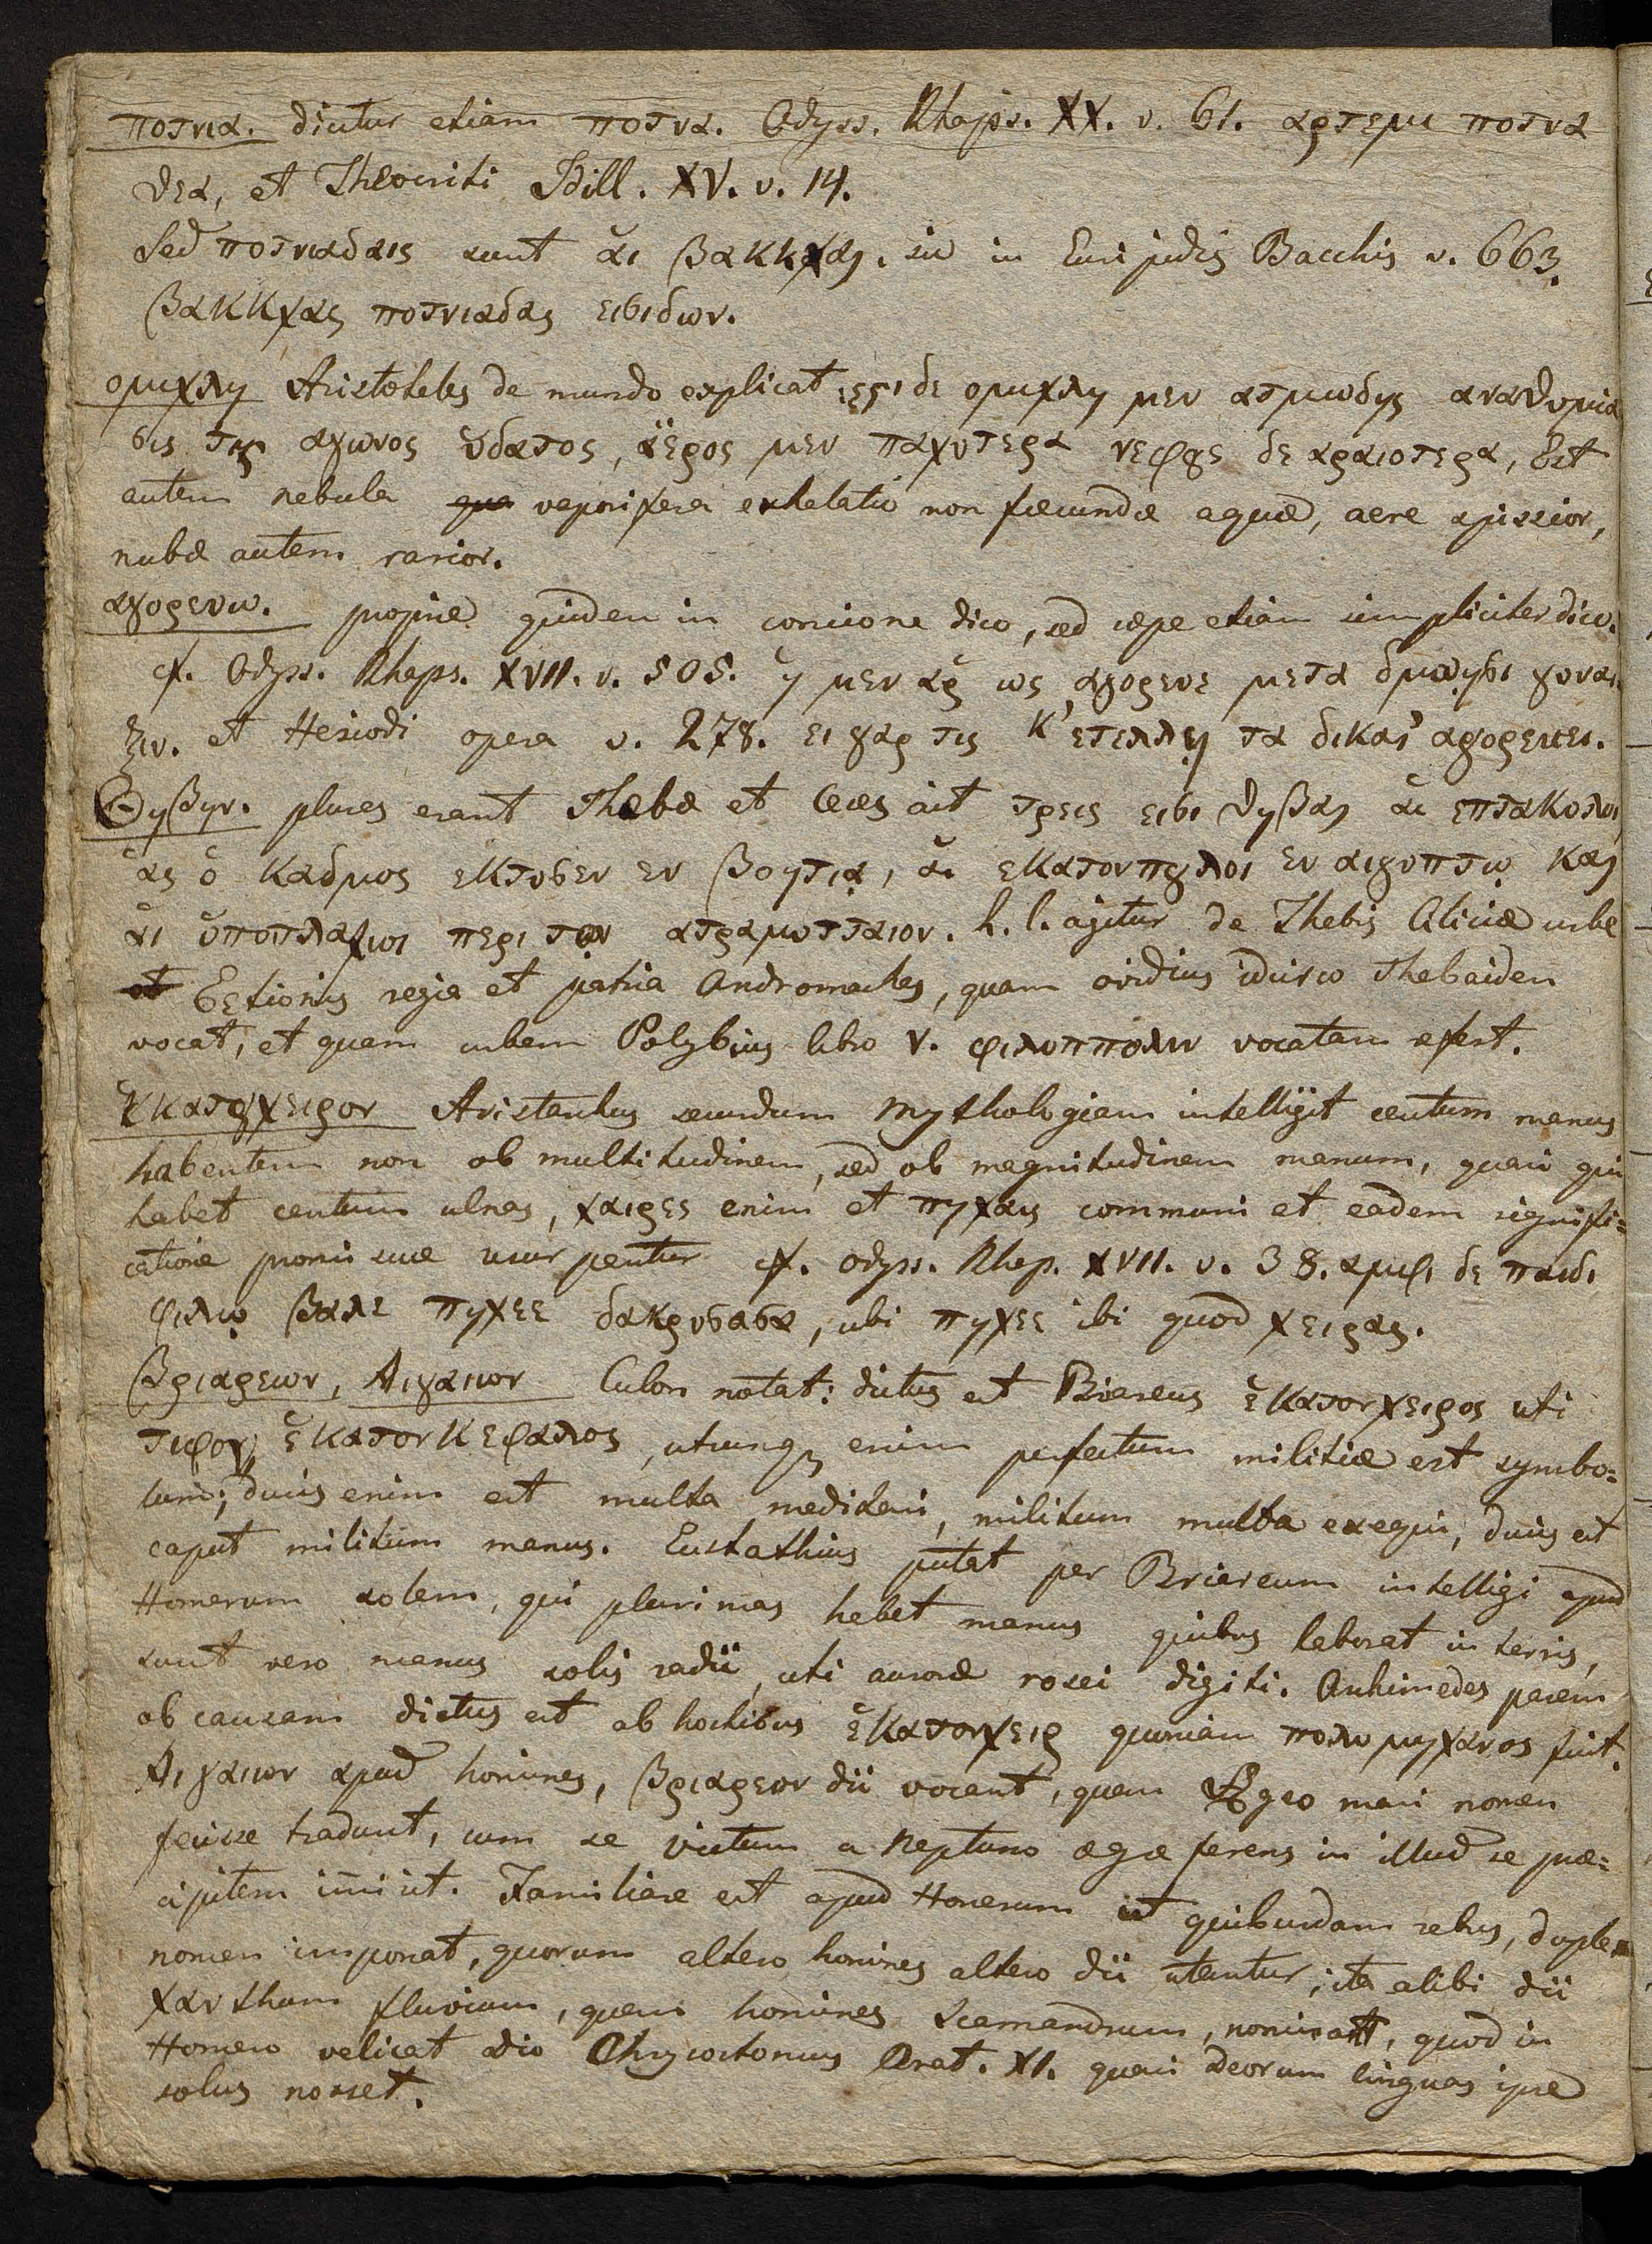 ποτνια. dicitur etiam ποτνα. Odyss. Rhaps. XX. v. 61. αρτεμι ποτνα
θεα, et Theocriti Idill. XV. v. 14.
Sed ποτνιαδαις sunt ἁι βακκχαι. sic in Euripidis Bacchis v. 663.
βακκχας ποτνιαδας εισιδων.
ομιχλη Aristoteles de mundo explicat εστι δε ομιχλη μεν ατμωδης αναθυμια
σις της αγωνος ὑδατος, ἀερος μεν παχυτερα νεφους δε αραιοτερα, Est
autem nebula vaporifera exhalatio non fæcundæ aquæ, aere spissior,
nubæ autem rarior.
αγορευω. proprie quidem in concione dico, sed sæpe etiam simpliciter dico.
cf. Odyss. Rhaps. XVII. v. 505. ἡ μεν αρ ως αγορευε μετα δμωησι γυναι
ξιν. et Hesiodi opera v. 278. ει γαρ τις κ'
Θηβην. plures erant Thebæ et ait τρεις εισι θηβαι ἁι επτακολοι
ἁς ὁ καδμος εκτισεν εν βοητια, ἁι εκατονπυλοι εν αιγυπτῳ και
ἁι ὑποπλακιοι περι τον ατραμυτταιον. h. l. agitur de Thebis Ciliciæ urbe
Eetionis regia et patria Andromaches, quam ovidius idcirco Thebaiden
vocat, et quam urbem Polybius libro V. φιλιππολιν vocatam refert.
ἑκατογχειρον Aristarchus secundum mythologiam intelligit centum manus
habentem non ob multitudinem, sed ob magnitudinem manum, quasi qui
habet centum ulnas, χαιρες enim et πηχαις communi et eadem signifi=
catione promiscue usurpentur cf. odyss. Rhap. XVII. v. 38. αμφι δε παιδι
φιλῳ βαλε πηχεε δακρυσασα, ubi πηχεε ibi quod χειρας.
βριαρεων, Αιγαιων Culon notat: dictus est Briareus ἑκατονχειρος uti
τιφον ἑκατονκεφαλος, utrumqz enim perfectum militiæ est symbo=
lum; ducis enim est multa meditari, militum multa exequi, dux est
caput militum manus. Eustathius putat per Briareum intelligi apud
Homerum solem, qui plurimas habet manus quibus laborat in terris,
sunt vero manus solis radii, uti auroræ rosei digiti. Archimedes parem
ob causam dictus est ab hostibus ἑκατονχειρ quoniam πολυμηχανος fuit.
Αιγαιων apud homines, βριαρεων dii vocant, quem Ægeo mari nomen
fecisse tradunt, cum se victum a Neptuno ægre ferens in illud se præ=
cipitem im̄isit. Familiare est apud Homerum ut quibusdam rebus, duplex
nomen imponat, quorum altero homines altero dii utantur; ita alibi dii
xanthum fluvium, quem homines Scamandrum, nominant, quod in
Homero velicat dio Chrysostomus Orat. XI. quasi deorum linguas ipse
solus nosset.